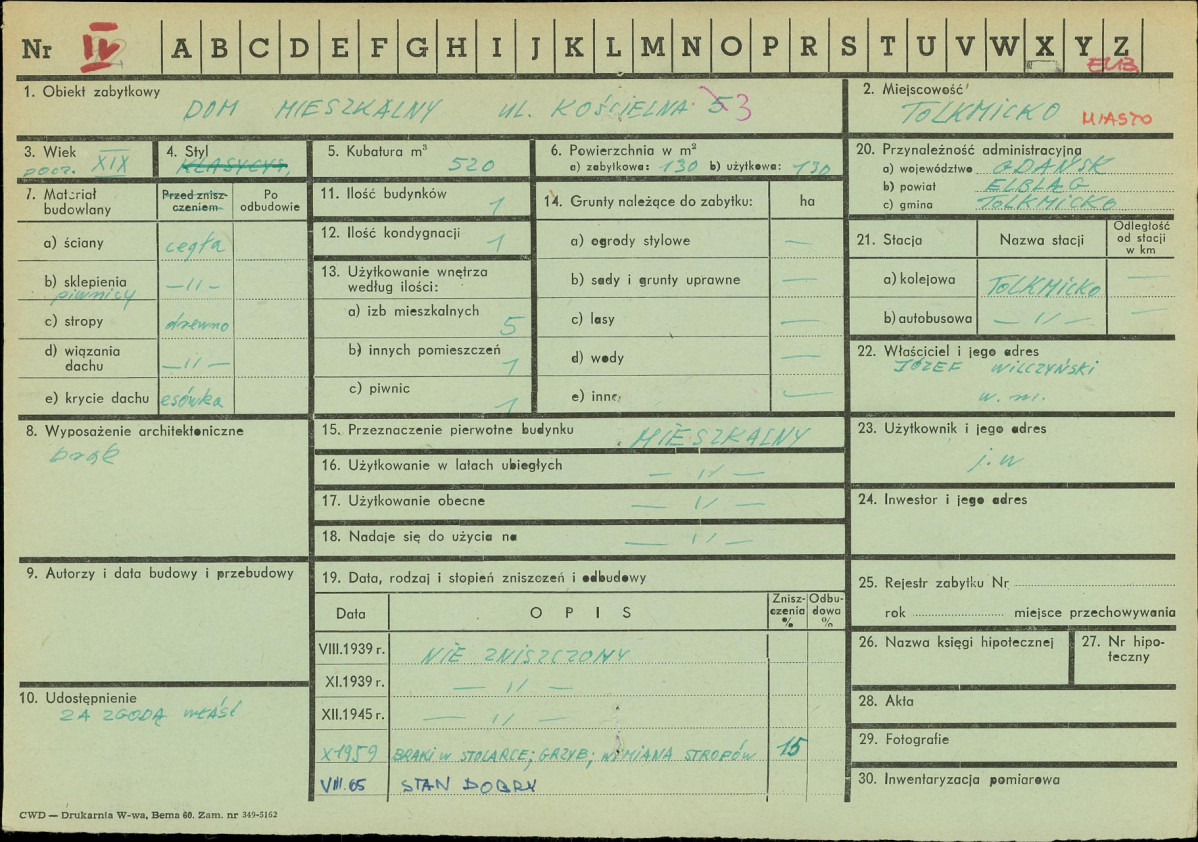 Nr IV A B C D E F G H I J K L M N O P R S T U V W X Y Z
ELB
1. Obiekt zabytkowy
DOM MIESZKALNY UL. KOŚCIELNA 53
2. Miejscowość
TOLKMICKO MIASTO
3. Wiek
pocz. XIX
4. Styl
KLASYCYS.
5. Kubatura m³
520
6. Powierzchnia w m²
a) zabytkowa: 130 b) użytkowa: 130
7. Materiał budowlany
Przed zniszczeniem
Po odbudowie
a) ściany cegła
b) sklepienia piwnicy —"—
c) stropy drzewno
d) wiązania dachu —"—
e) krycie dachu esówka
8. Wyposażenie architektoniczne
brak
9. Autorzy i data budowy i przebudowy
10. Udostępnienie
ZA ZGODĄ WŁAŚC
11. Ilość budynków 1
12. Ilość kondygnacji 1
13. Użytkowanie wnętrza według ilości:
a) izb mieszkalnych 5
b) innych pomieszczeń 1
c) piwnic 1
14. Grunty należące do zabytku: ha
a) ogrody stylowe —
b) sady i grunty uprawne —
c) lasy —
d) wody —
e) inne —
15. Przeznaczenie pierwotne budynku MIESZKALNY
16. Użytkowanie w latach ubiegłych —"—
17. Użytkowanie obecne —"—
18. Nadaje się do użycia na —"—
19. Data, rodzaj i stopień zniszczeń i odbudowy
Data
OPIS
Zniszczenia %
Odbudowa %
VIII.1939 r. NIE ZNISZCZONY
XI.1939 r. —"—
XII.1945 r. —"—
X 1959 BRAKI W STOLARCE; GRZYB; WYMIANA STROPÓW 15
VIII.65 STAN DOBRY
20. Przynależność administracyjna
a) województwo GDAŃSK
b) powiat ELBLĄG
c) gmina TOLKMICKO
21. Stacja
Nazwa stacji
Odległość od stacji w km
a) kolejowa TOLKMICKO —
b) autobusowa —"— —
22. Właściciel i jego adres
JÓZEF WILCZYŃSKI
w. m.
23. Użytkownik i jego adres
j.w
24. Inwestor i jego adres
25. Rejestr zabytku Nr
rok miejsce przechowywania
26. Nazwa księgi hipotecznej
27. Nr hipoteczny
28. Akta
29. Fotografie
30. Inwentaryzacja pomiarowa
CWD — Drukarnia W-wa, Bema 60. Zam. nr 349-5162